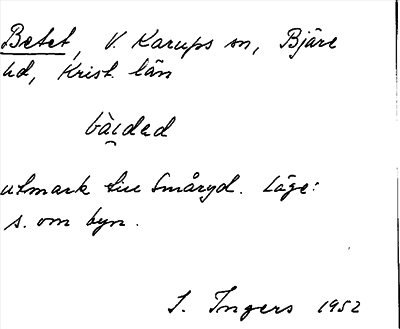 Betet, V. Karups sn, Bjäre
hd, Krist. län
utmark till Småryd. Läge:
s. om byn.
I. Ingers 1952